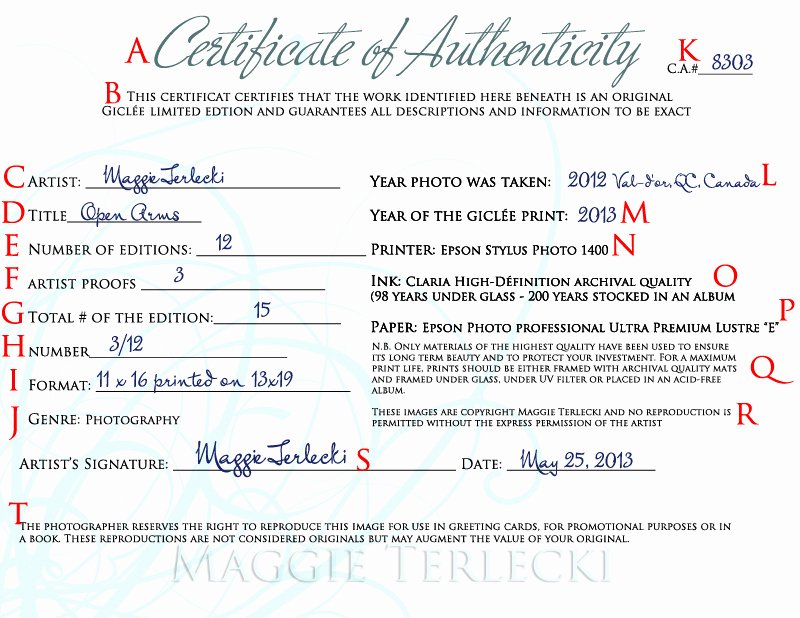 A Certificate of Authenticity
K C.A.# 8303
B This certificat certifies that the work identified here beneath is an original
Giclée limited edtion and guarantees all descriptions and information to be exact
C Artist: Maggie Terlecki
D Title Open Arms
E Number of editions: 12
F artist proofs 3
G Total # of the edition: 15
H number 3/12
I Format: 11 x 16 printed on 13x19
J Genre: Photography
Year photo was taken: 2012 Val-d'or, QC, Canada L
Year of the giclée print: 2013 M
Printer: Epson Stylus Photo 1400 N
Ink: Claria High-Définition archival quality O
(98 years under glass - 200 years stocked in an album
P
Paper: Epson Photo professional Ultra Premium Lustre "E"
N.B. Only materials of the highest quality have been used to ensure
its long term beauty and to protect your investment. For a maximum
print life, prints should be either framed with archival quality mats
and framed under glass, under UV filter or placed in an acid-free
album.
Q
These images are copyright Maggie Terlecki and no reproduction is
permitted without the express permission of the artist
R
Artist's Signature: Maggie Terlecki S Date: May 25, 2013
T
The photographer reserves the right to reproduce this image for use in greeting cards, for promotional purposes or in
a book. These reproductions are not considered originals but may augment the value of your original.
Maggie Terlecki